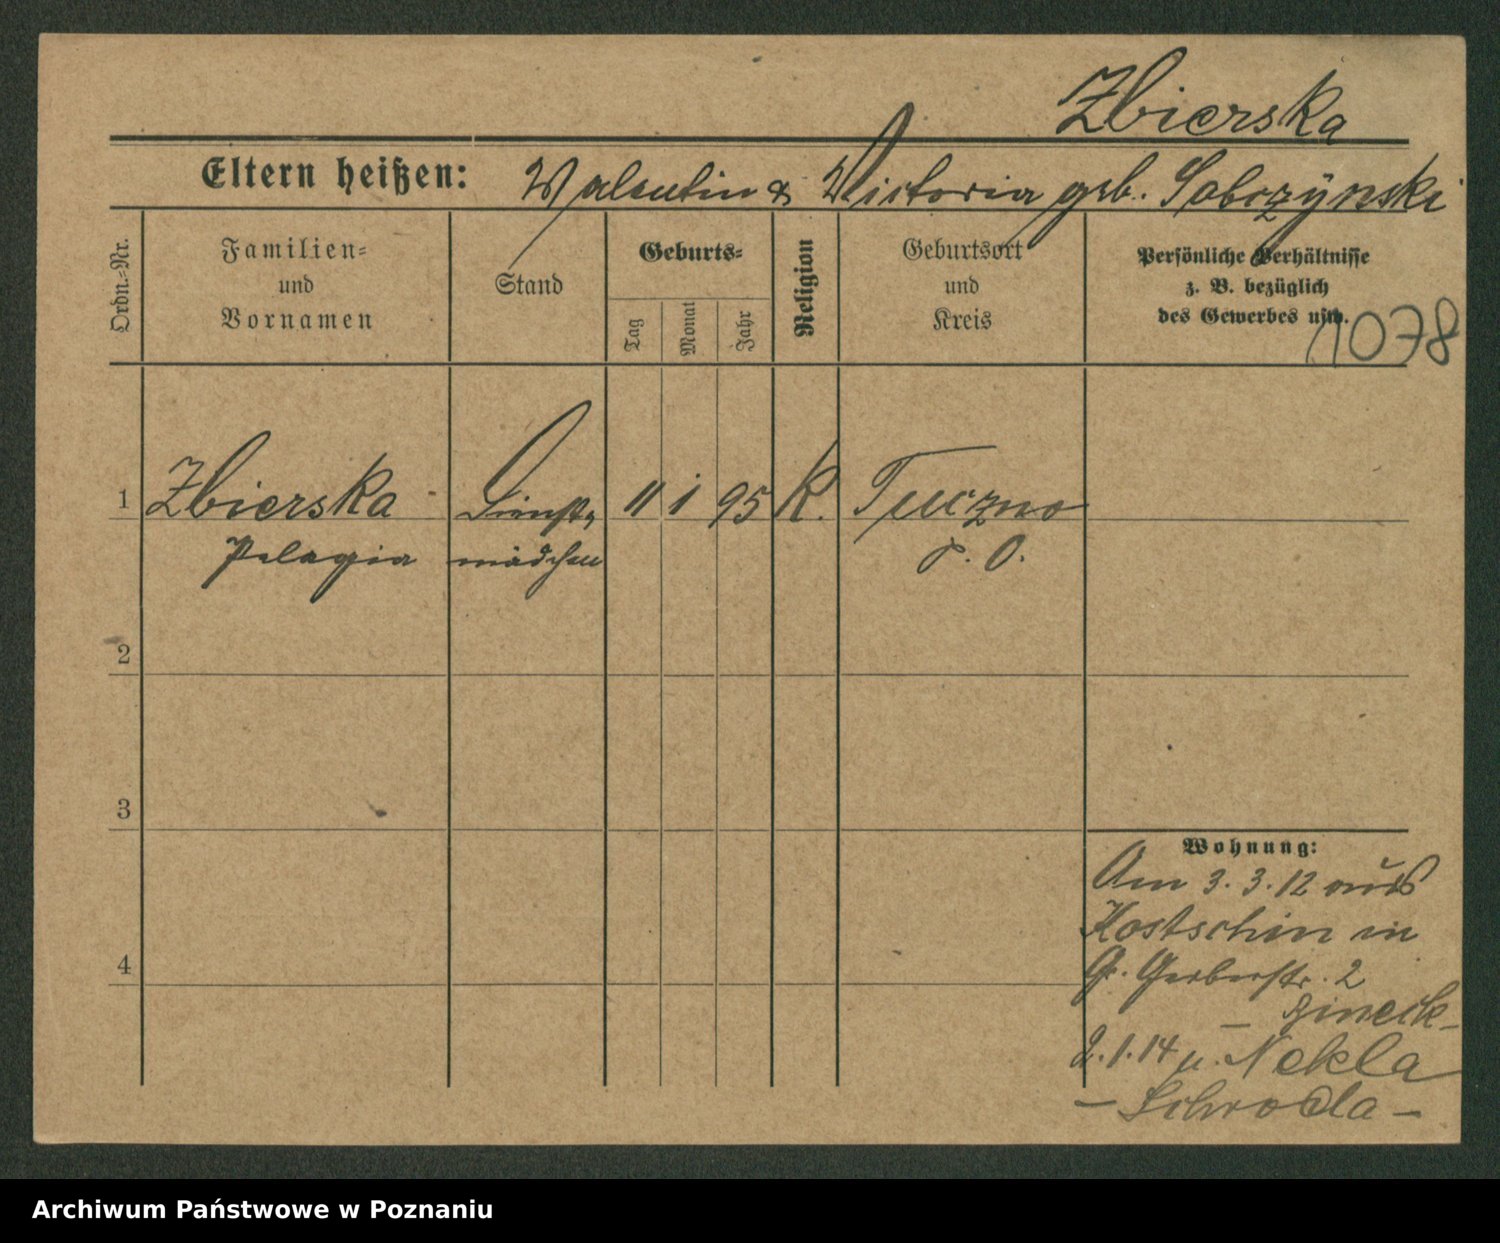 Zbierska
Eltern heißen: Valentin & Victoria geb. Sobczÿnski
Ordn.=Nr.
Familien=
und
Vornamen
Stand
Geburts=
Tag
Monat
Jahr
Religion
Geburtsort
und
Kreis
Persönliche Verhältnisse
z. B. bezüglich
des Gewerbes usw.
1078
1 Zbierska Dienst= 11 1 95 K. Tuczno
Pelagia mädchen P. O.
2
3
4
Wohnung:
Am 3. 3. 12 aus
Kostschin in
Gr. Gerberstr. 2
2. 1. 14 n. Nekla
– Schroda –
Archiwum Państwowe w Poznaniu